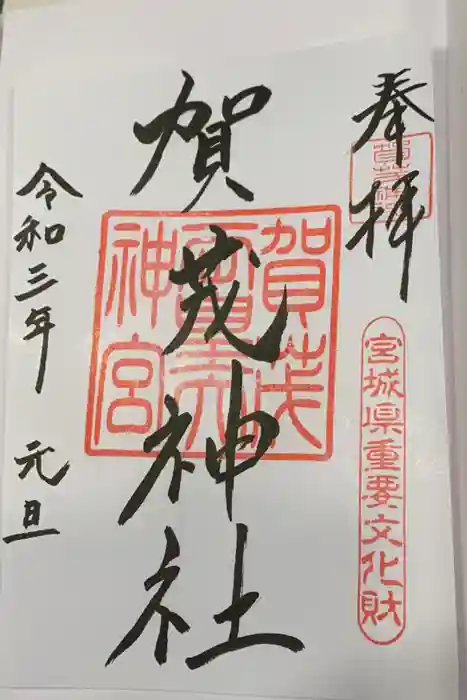 奉拝
宮城県重要文化財
賀茂神社
賀茂
神宮
令和三年 元旦